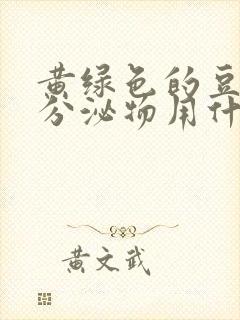 黄绿色的豆
分泌物用什
黄文武